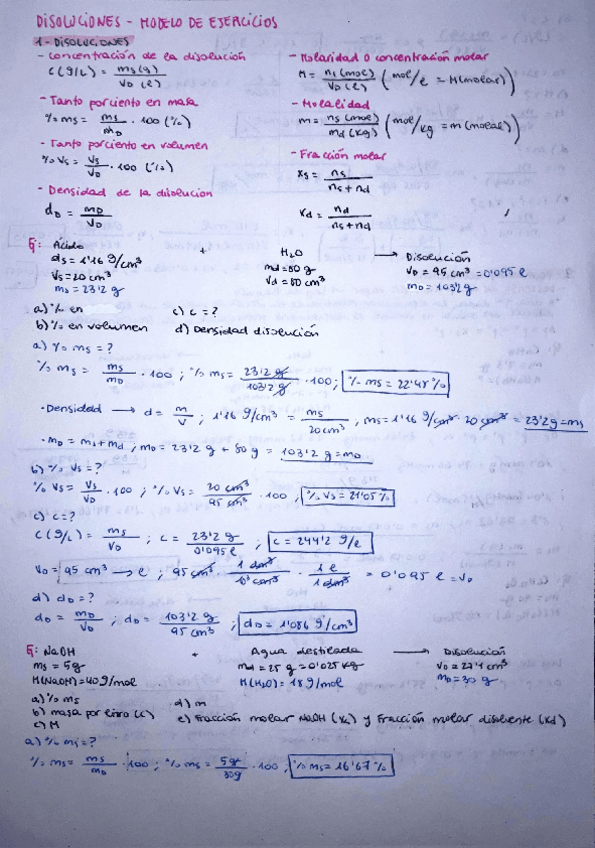 DISOLUCIONES - MODELO DE EJERCICIOS
1- DISOLUCIONES
- Concentración de la disolución
c (g/l) = ms (g) / VD (l)
- Tanto por ciento en masa
% ms = ms / mD · 100 (%)
- Tanto por ciento en volumen
% Vs = Vs / VD · 100 (%)
- Densidad de la disolución
dD = mD / VD
- Molaridad o concentración molar
M = ns (mol) / VD (l) (mol/l = M (molar))
- Molalidad
m = ns (mol) / md (kg) (mol/kg = m (molal))
- Fracción molar
xs = ns / ns + nd
xd = nd / ns + nd
Ej: Ácido + H2O → Disolución
ds = 1'16 g/cm³ md = 80 g VD = 95 cm³ = 0'095 l
Vs = 20 cm³ Vd = 80 cm³ mD = 103'2 g
ms = 23'2 g
a) % en c) c = ?
b) % en volumen d) Densidad disolución
a) % ms = ?
% ms = ms / mD · 100 ; % ms = 23'2 g / 103'2 g · 100 ; % ms = 22'48 %
· Densidad → d = m / v ; 1'16 g/cm³ = ms / 20 cm³ , ms = 1'16 g/cm³ · 20 cm³ = 23'2 g = ms
· mD = ms + md ; mD = 23'2 g + 80 g = 103'2 g = mD
b) % Vs = ?
% Vs = Vs / VD · 100 ; % Vs = 20 cm³ / 95 cm³ · 100 ; % Vs = 21'05 %
c) c = ?
c (g/l) = ms / VD ; c = 23'2 g / 0'095 l ; c = 244'2 g/l
VD = 95 cm³ → l ; 95 cm³ · 1 dm³ / 10³ cm³ · 1 l / 1 dm³ = 0'095 l = VD
d) dD = ?
dD = mD / VD ; dD = 103'2 g / 95 cm³ ; dD = 1'086 g/cm³
Ej: NaOH + Agua destilada → Disolución
ms = 5 g md = 25 g = 0'025 kg VD = 27'4 cm³
M(NaOH) = 40 g/mol M(H2O) = 18 g/mol mD = 30 g
a) % ms d) m
b) masa por litro (c) e) Fracción molar NaOH (xs) y Fracción molar disolvente (xd)
c) M
a) % ms = ?
% ms = ms / mD · 100 ; % ms = 5 g / 30 g · 100 ; % ms = 16'67 %